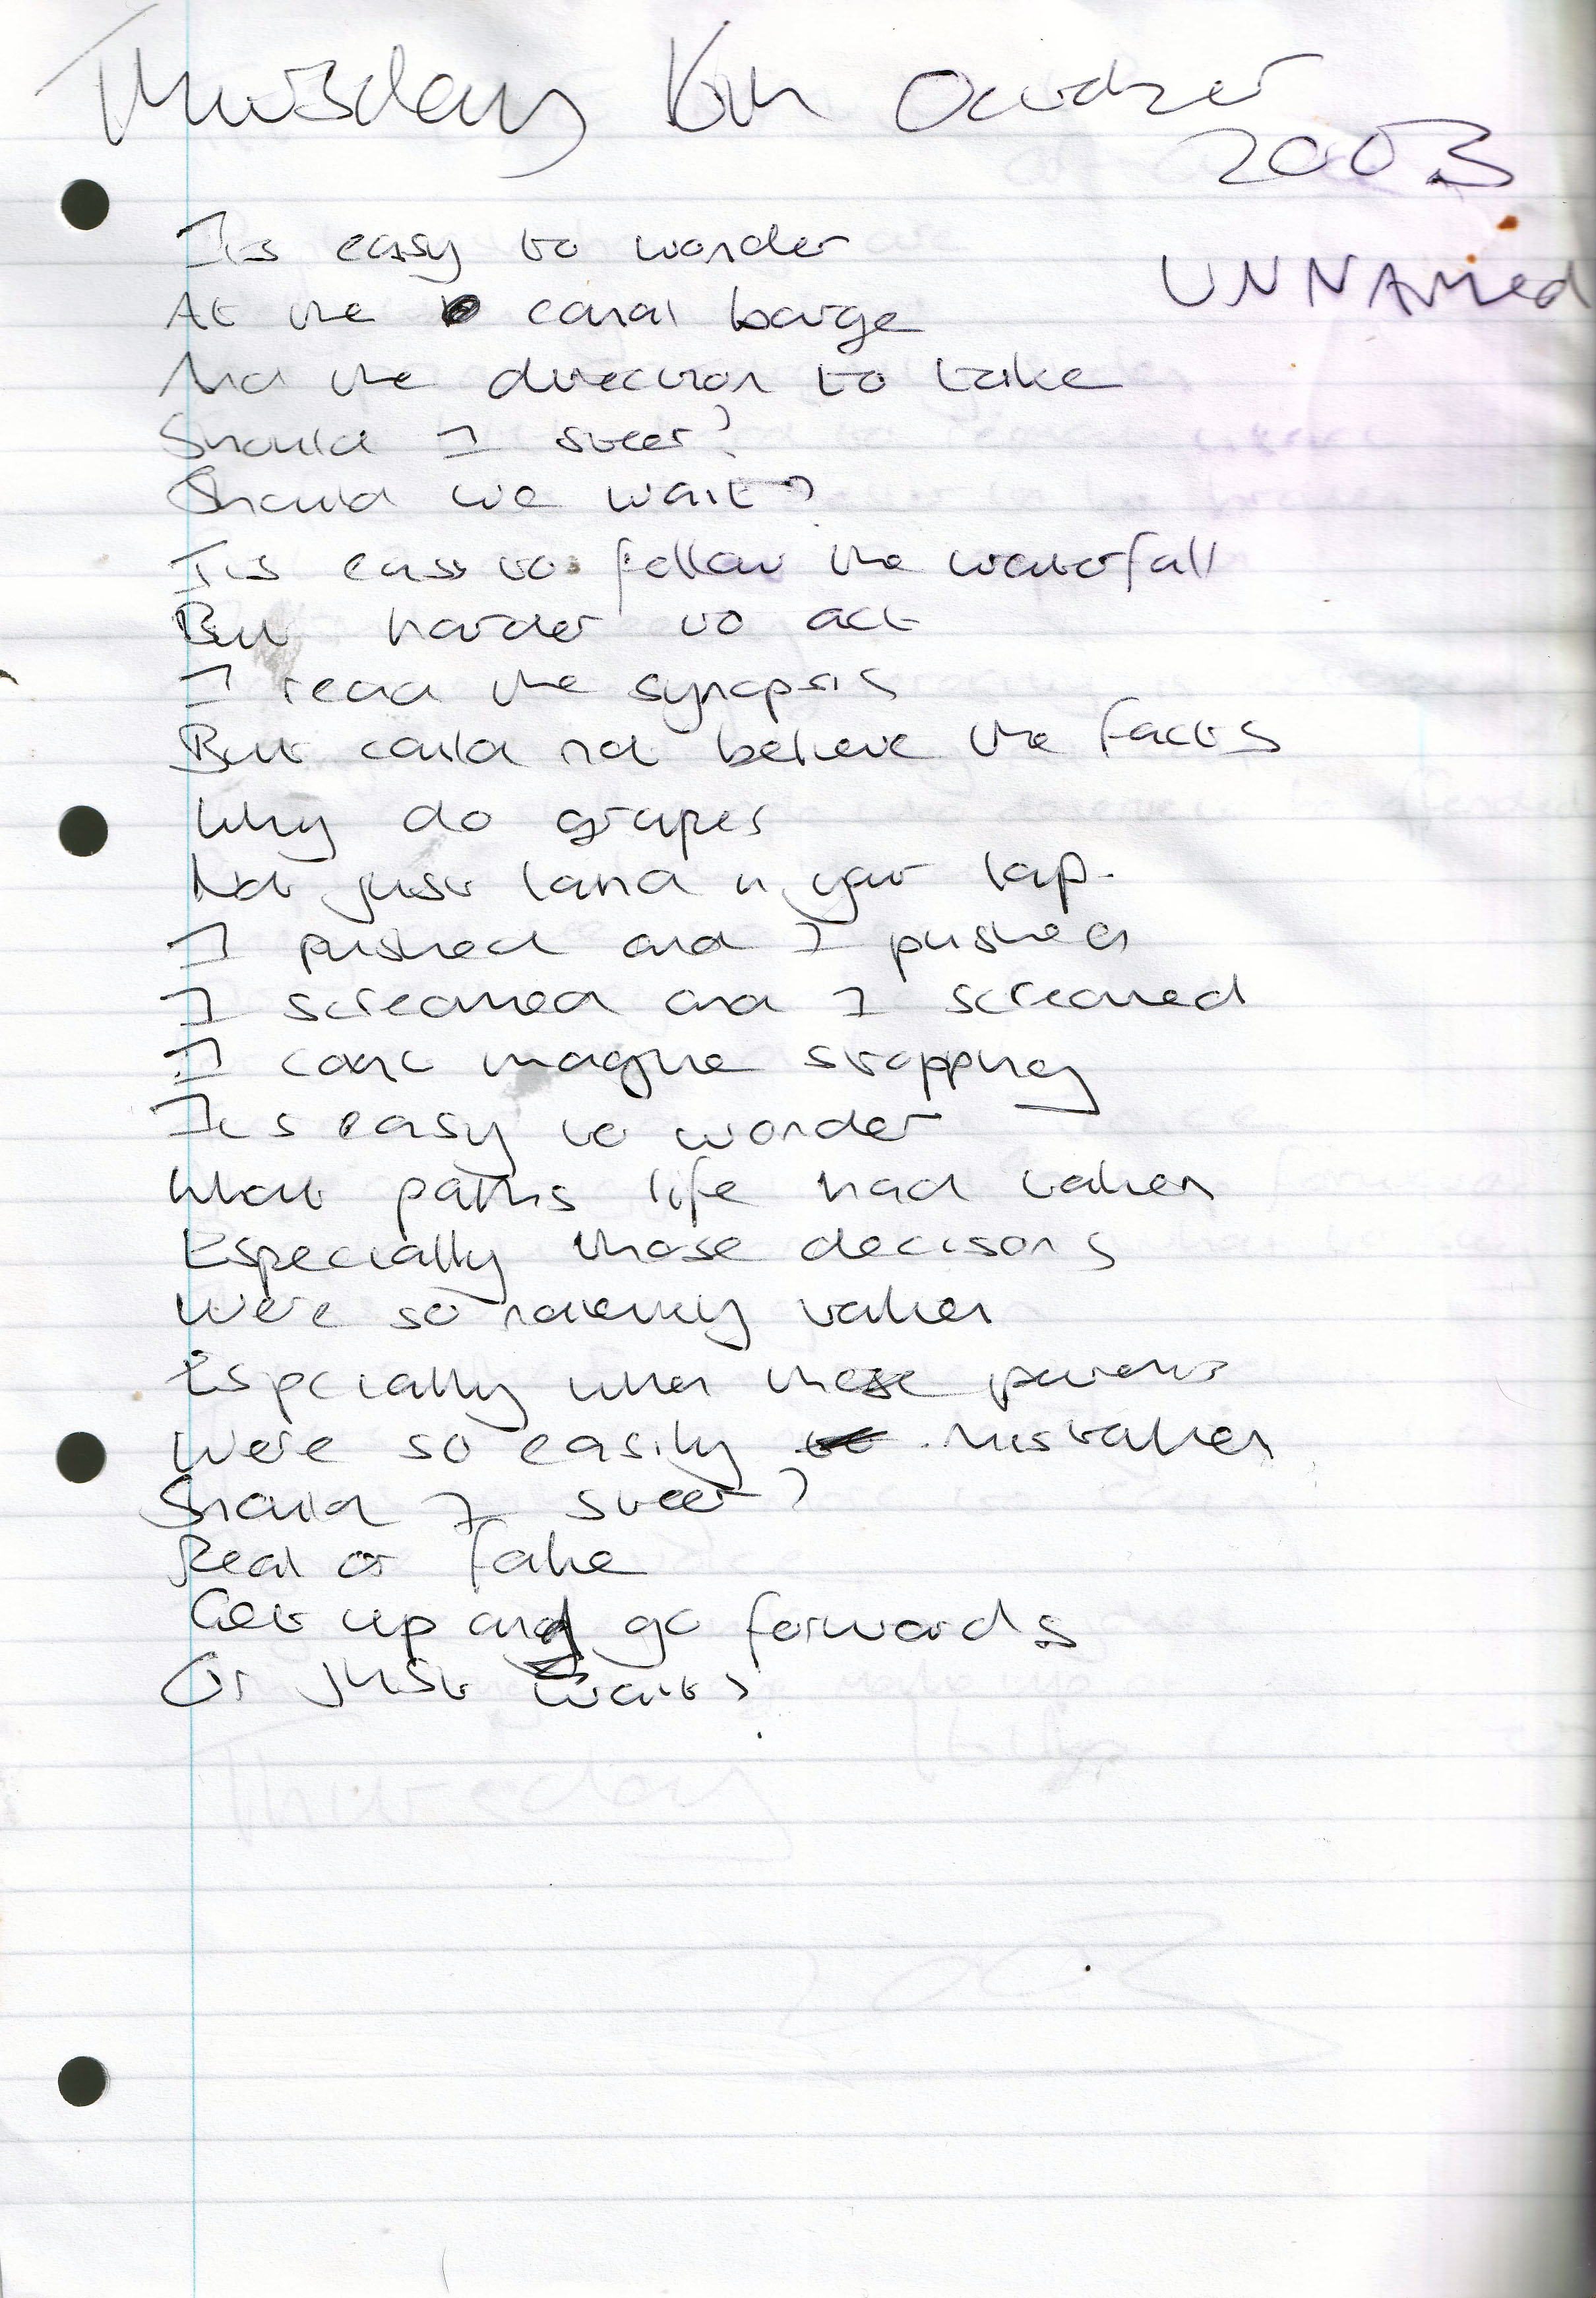 Thursday 16th October
2003
UNNAMed
Its easy to wonder
At the canal barge
And the direction to take
Should I steer?
Should we wait?
Its easy to follow the waterfall
But harder to act
I read the synopsis
But could not believe the facts
Why do grapes
Not just land in your lap.
I pushed and I pushed
I screamed and I screamed
I cant imagine stopping
Its easy to wonder
What paths life had taken
Especially those decisons
Were so naievely taken
Espcially when these parents
Were so easily mistaken
Should I steer?
Real or fake
Get up and go forwards
Or just wait?